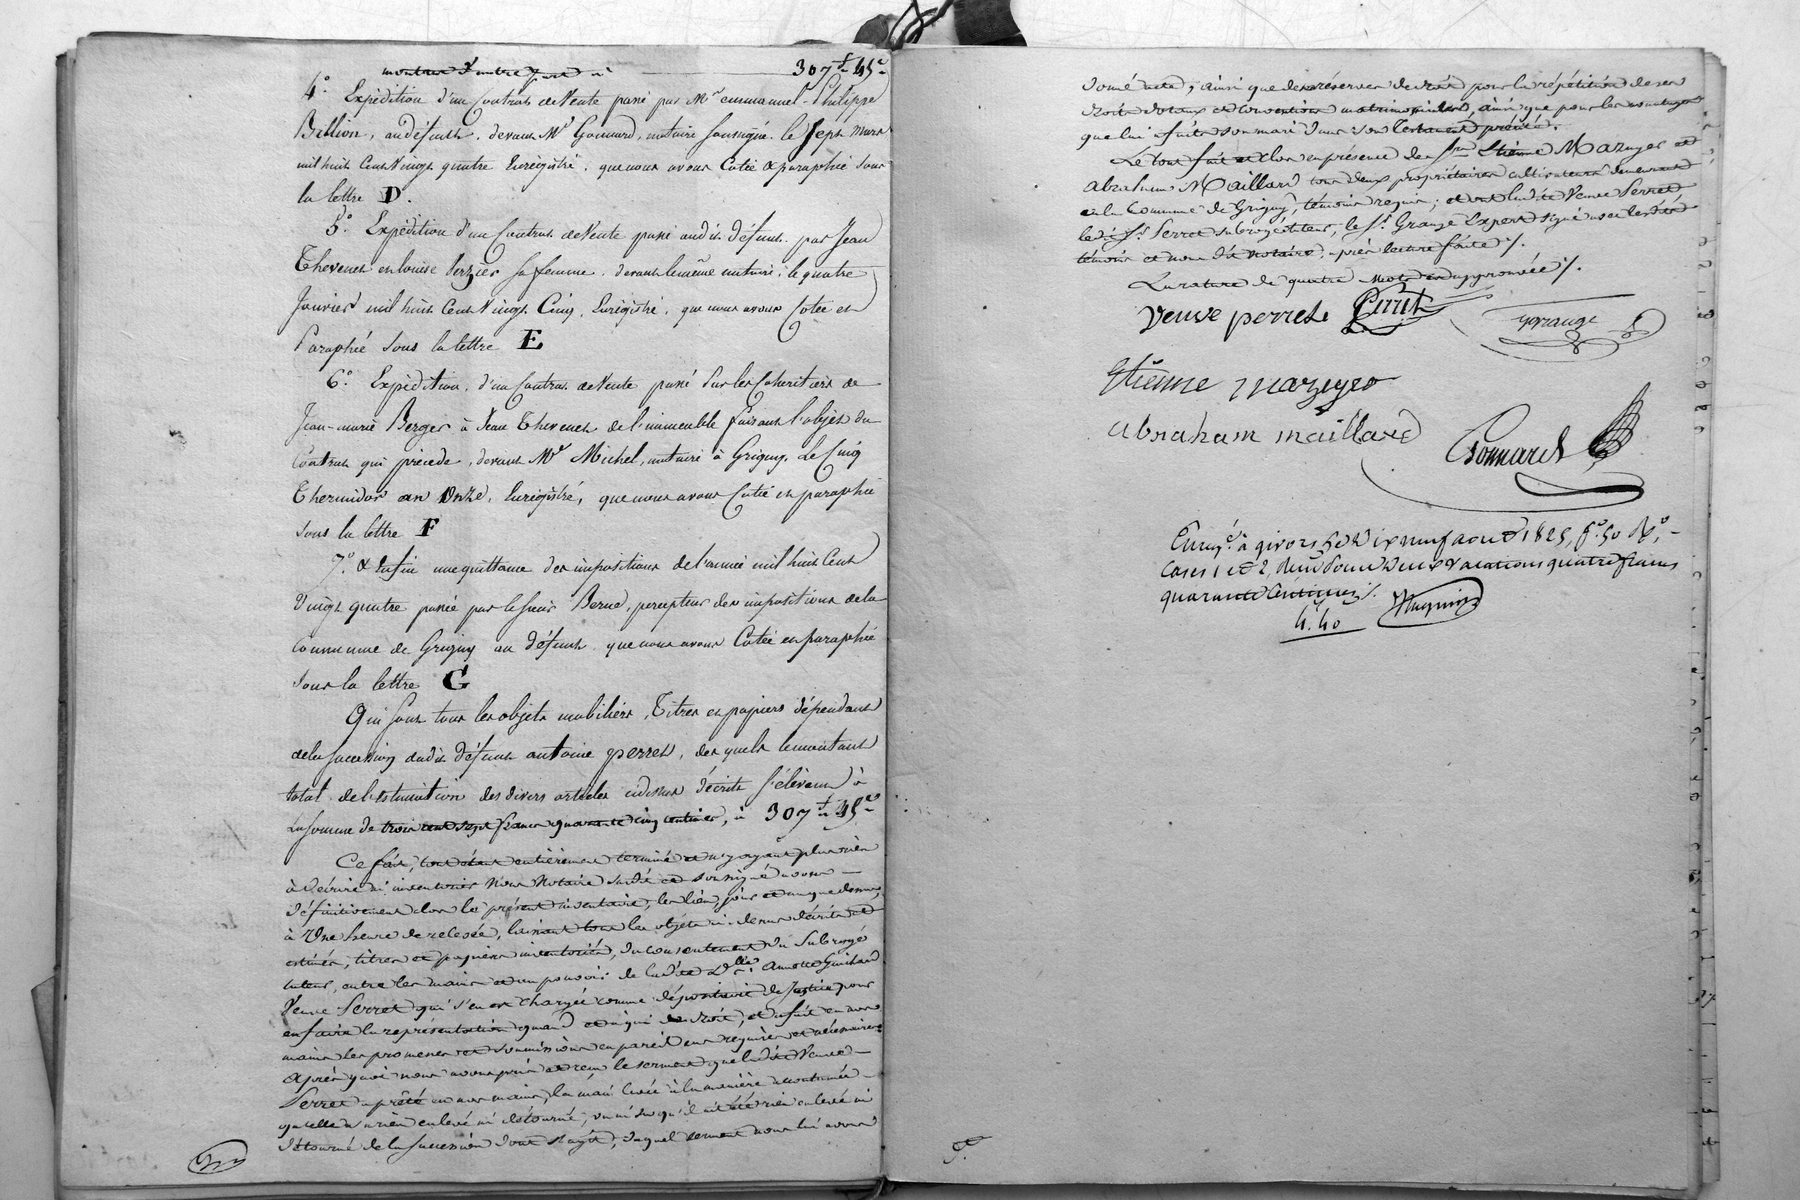 montant d'autre part à 307f 45c
4° Expédition d'un Contrat de Vente passé par Mr emmanuel-Philippe
Billion, au défunt, devant Me Gonnard, notaire soussigné, le Sept Mars
mil huit Cent Vingt quatre Enregistré, que nous avons Cotée & paraphée sous
la lettre D.
5° Expédition d'un Contrat de Vente passé audit défunt par Jean
Thevenet et louise Verzier sa femme, devant le même notaire, le quatre
Janvier mil huit Cent Vingt Cinq, Enregistré, que nous avons Cotée et
Paraphée sous la lettre E
6° Expédition d'un Contrat de Vente passé par les Coheritiers de
Jean-marie Berger à Jean Thevenet de l'immeuble faisant l'objet du
Contrat qui précède, devant Me Michel, notaire à Grigny, Le Cinq
Thermidor an Onze, Enregistré, que nous avons Cotée et paraphée
sous la lettre F
7° & Enfin une quittance des impositions de l'année mil huit Cent
Vingt quatre passée par le Sieur Berne, percepteur des impositions de la
Commune de Grigny au défunt que nous avons Cotée et paraphée
sous la lettre G
Qui sont tous les objets mobiliers, Titres et papiers dépendant
de la succession dudit défunt antoine perret, des quels le montant
total de l'estimation des divers articles cidessus décrits s'élèvent à
la somme de trois cent sept francs quarante cinq centimes, à 307f 45c
Ce fait, tout étant entièrement terminé et n'y ayant plus rien
à décrire ni inventorier Nous Notaire susdit et soussigné avons
définitivement clos le présent inventaire, les lieu, jour et an que dessus,
à Une heure de relevée, laissant tous les objets ci-dessus décrits et
estimés, titres et papiers inventoriés, du consentement du Subrogé
tuteur, entre les mains et au pouvoir de ladite Dlle Annette Guichard
Veuve Perret qui s'en est chargée comme dépositaire de Justice pour
en faire la représentation quand et à qui de droit, et a fait en nos
mains les promesses et soumissions en pareil cas requises et nécessaires
Après quoi nous avons pris et reçu le serment que ladite Veuve
Perret a prêté en nos mains, la main levée à la manière accoutumée
qu'elle n'a rien enlevé ni détourné, vu ni su qu'il ait été rien enlevé ni
détourné de la succession dont s'agit, duquel serment nous lui avons
donné acte, ainsi que des réserves de droit pour la répétition de ses
droits dotaux et Conventions matrimoniales, ainsi que pour les avantages
que lui a faits son mari dans son Testament précité.
Le tout fait et clos en présence de Srs Etienne Mazuyer et
Abraham Maillard tous deux propriétaires cultivateurs demeurant
en la Commune de Grigny, témoins requis; et ont ladite Veuve Perret
ledit Sr Perret subrogé tuteur, le Sr Grange Expert signé avec lesdits
témoins et nous dit notaire, après lecture faite /.
La rature de quatre mots est approuvée /.
Veuve perret Perret grange
Etienne mazuyer
abraham maillard Gonnard
Enregé à givors le dix neuf aout 1825, fo 50 Ro,
Cases 1 et 2, Reçu pour deux vacations quatre francs
quarante Centimes /.
4.40